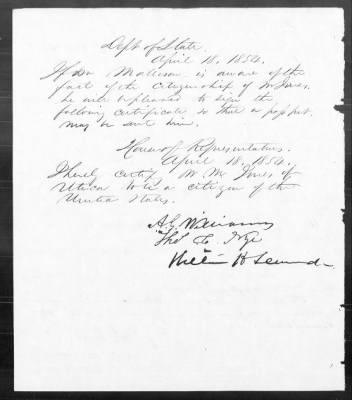 Dept of State.
April 18. 1854.
If Dr Matteson is aware of the
fact of the citizenship of Mr Jones,
he will be pleased to sign the
following certificate so that a passport
may be sent him.
House of Representatives.
April 18. 1854.
I hereby certify Mr Jones of
Utica to be a citizen of the
United States.
A. G. Williams
Tho
William H Seward